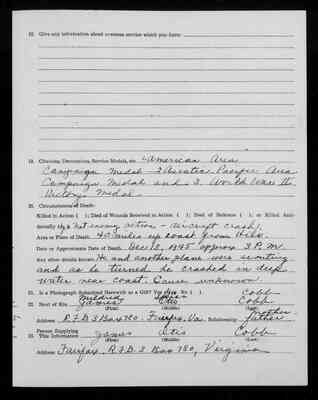 18. Give any information about overseas service which you have:
19. Citations, Decorations, Service Medals, etc. American Area
Campaign Medal - Asiatic Pacific Area
Campaign Medal and 3. World War II
Victory Medal.
20. Circumstances of Death:
Killed in Action ( ); Died of Wounds Received in Action ( ); Died of Disease ( ); or Killed Acci-
dentally (X) Not enemy action - aircraft crash
Area or Place of Death 40 miles up coast from
Date or Approximate Date of Death Dec 13, 1945 approx 3 P.M.
Any other details known: He and another plane were scouting
and as he turned he crashed in deep
water near coast. Cause unknown.
21. Is a Photograph Submitted Herewith as a Gift? Yes ( ) No ( ).
Mildred Cobb
22. Next of Kin James Otis Cobb
(First) (Middle) (Last)
mother
Address R.F.D 3 Box 780 - Fairfax, Va. Relationship father
Person Supplying
23. This Information James Otis Cobb
(First) (Middle) (Last)
Address Fairfax, R.F.D. 3 Box 780, Virginia